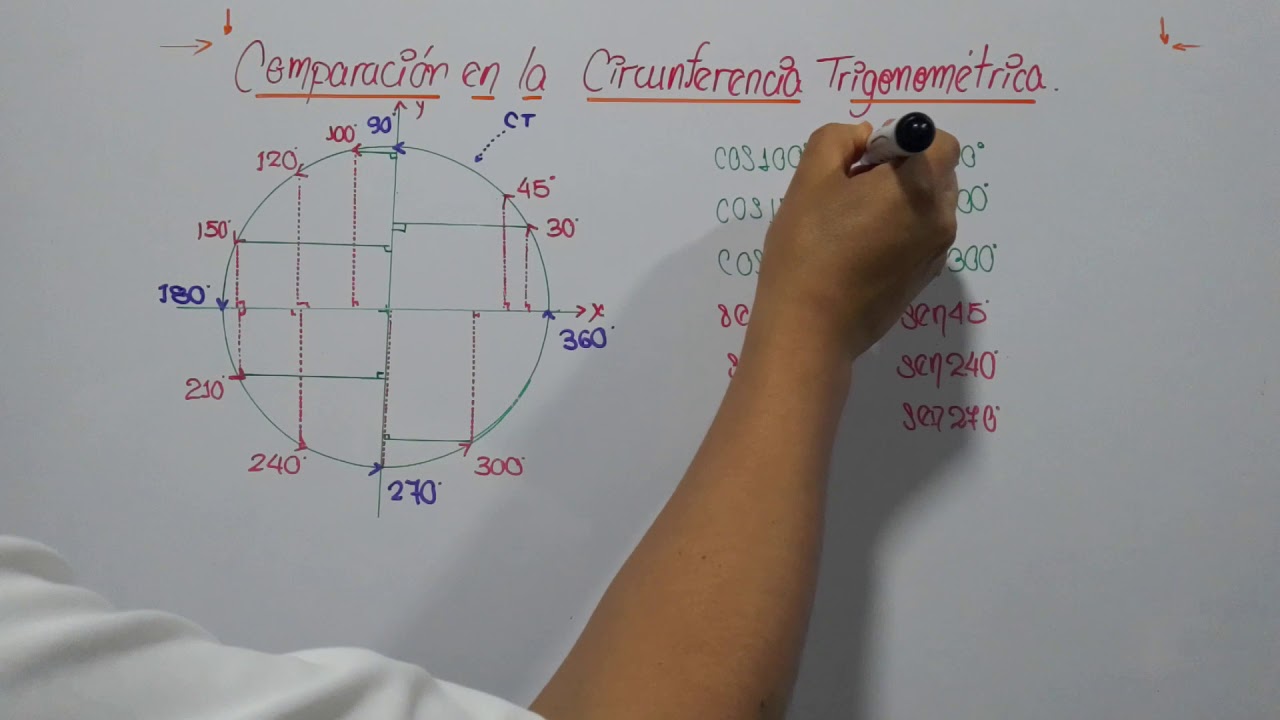 Comparación en la Circunferencia Trigonométrica.
90° y
100° CT
120°
45°
150° 30°
180° x
360°
210°
240° 300°
270°
COS100
COS
300°
sen45°
sen240°
sen270°